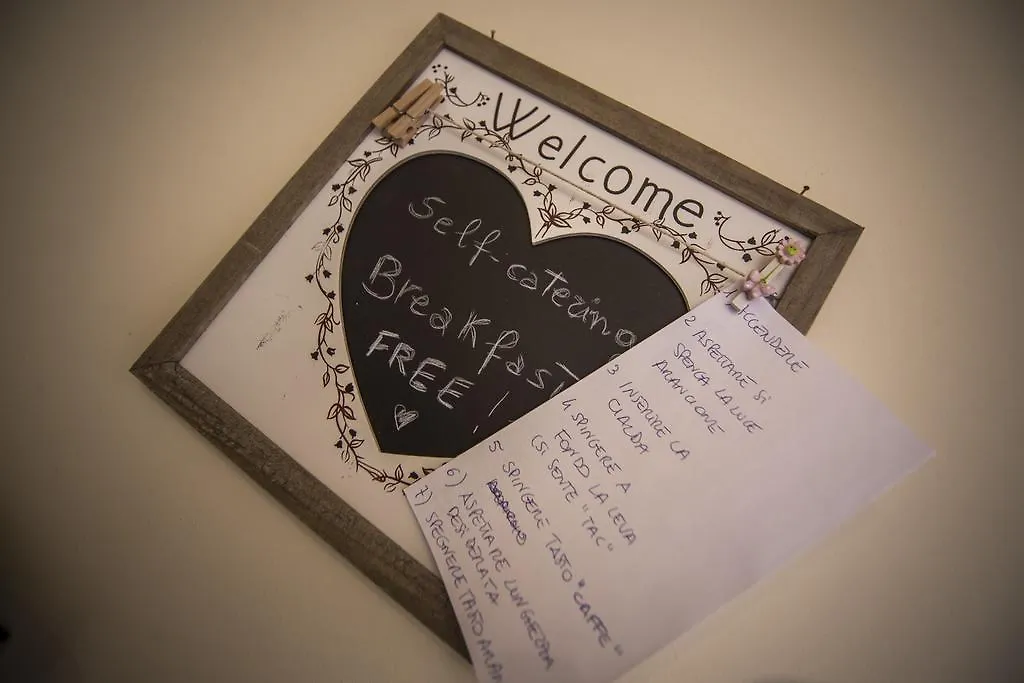 Welcome
Self-catering
Breakfast
FREE
ACCENDERE
2 ASPETTARE SI
SPENGA LA LUCE
ARANCIONE
3 INSERIRE LA
CIALDA
4 SPINGERE A
FONDO LA LEVA
(SI SENTE "TAC"
5 SPINGERE TASTO "CAFFE"
6) ASPETTARE LUNGHEZZA
DESIDERATA
7) SPEGNERE TASTO ARAN